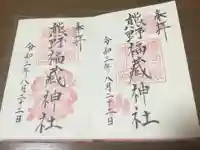 奉拝
熊野福蔵神社
令和二年八月二十二日
奉拝
熊野福蔵神社
令和二年八月二十二日